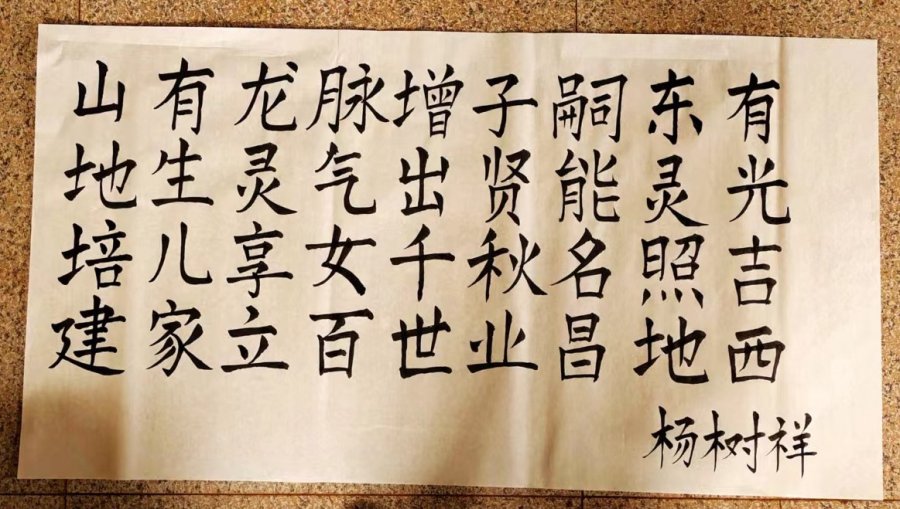 山有龙脉增子嗣东有
地生灵气出贤能灵光
培儿享女千秋名照吉
建家立百世业昌地西
杨树祥